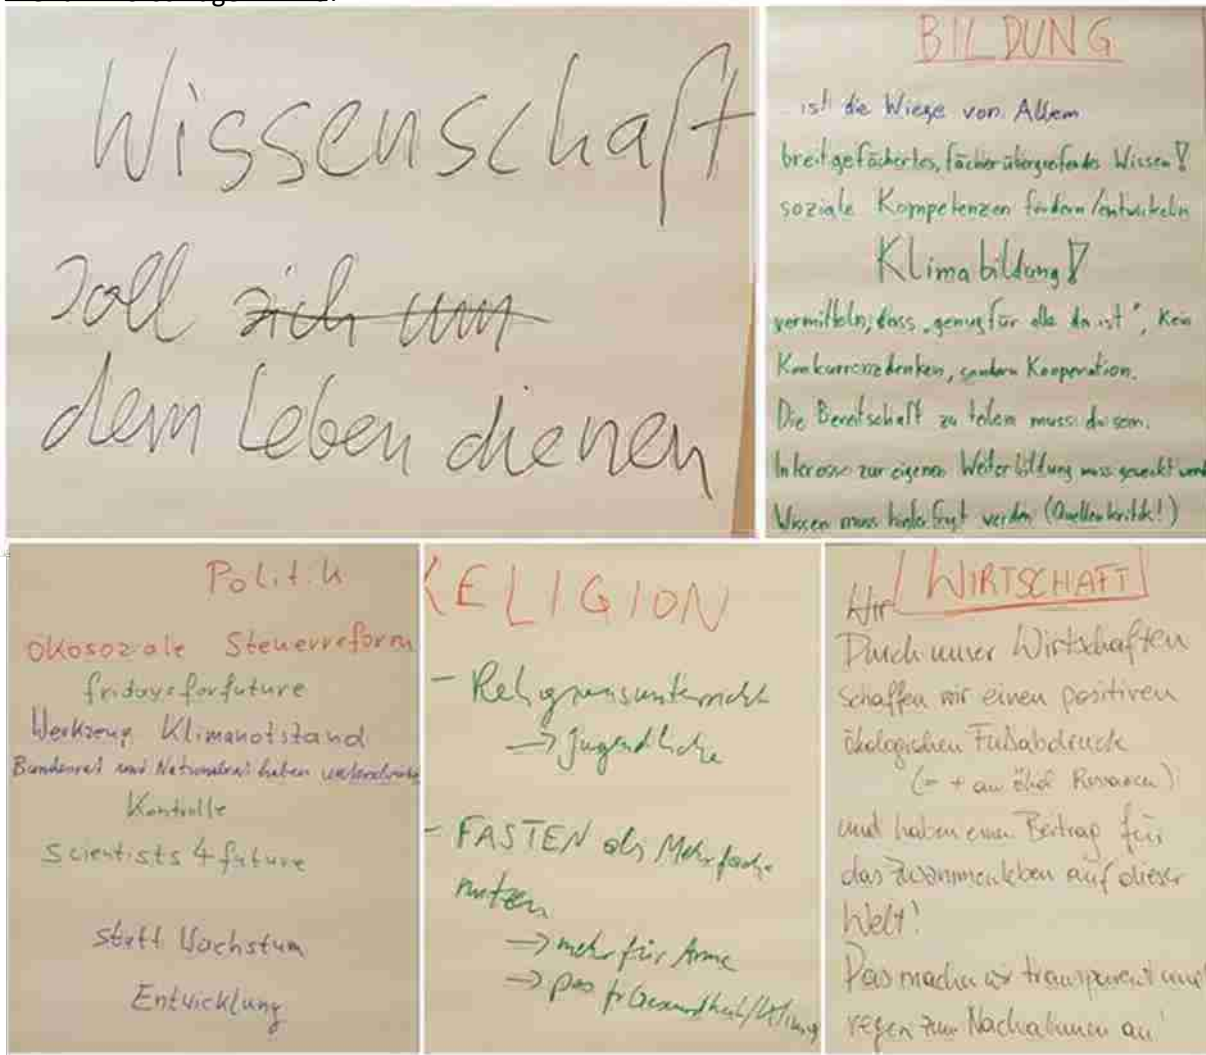 Wissenschaft
soll sich um
dem Leben dienen
BILDUNG
ist die Wiege von Allem
breitgefächertes, fächerübergreifendes Wissen!
soziale Kompetenzen fördern/entwickeln
Klimabildung!
vermitteln, dass "genug für alle da ist", kein
Konkurrenzdenken, sondern Kooperation.
Die Bereitschaft zu teilen muss da sein.
Interesse zur eigenen Weiterbildung muss geweckt
Wissen muss hinterfragt werden (Quellenkritik!)
Politik
Ökosoziale Steuerreform
fridaysforfuture
Werkzeug Klimanotstand
Bundesrat und Nationalrat haben
Kontrolle
Scientists 4 future
statt Wachstum
Entwicklung
RELIGION
- Religionsunterricht
→ Jugendliche
- FASTEN als
nutzen
→ mehr für Arme
→ Gesundheit/Klima
WIRTSCHAFT
Wir
Durch unser Wirtschaften
schaffen wir einen positiven
ökologischen Fußabdruck
(= + an ökol Ressourcen)
und haben einen Beitrag für
das Zusammenleben auf dieser
Welt!
Das machen wir transparent und
regen zum Nachahmen an!